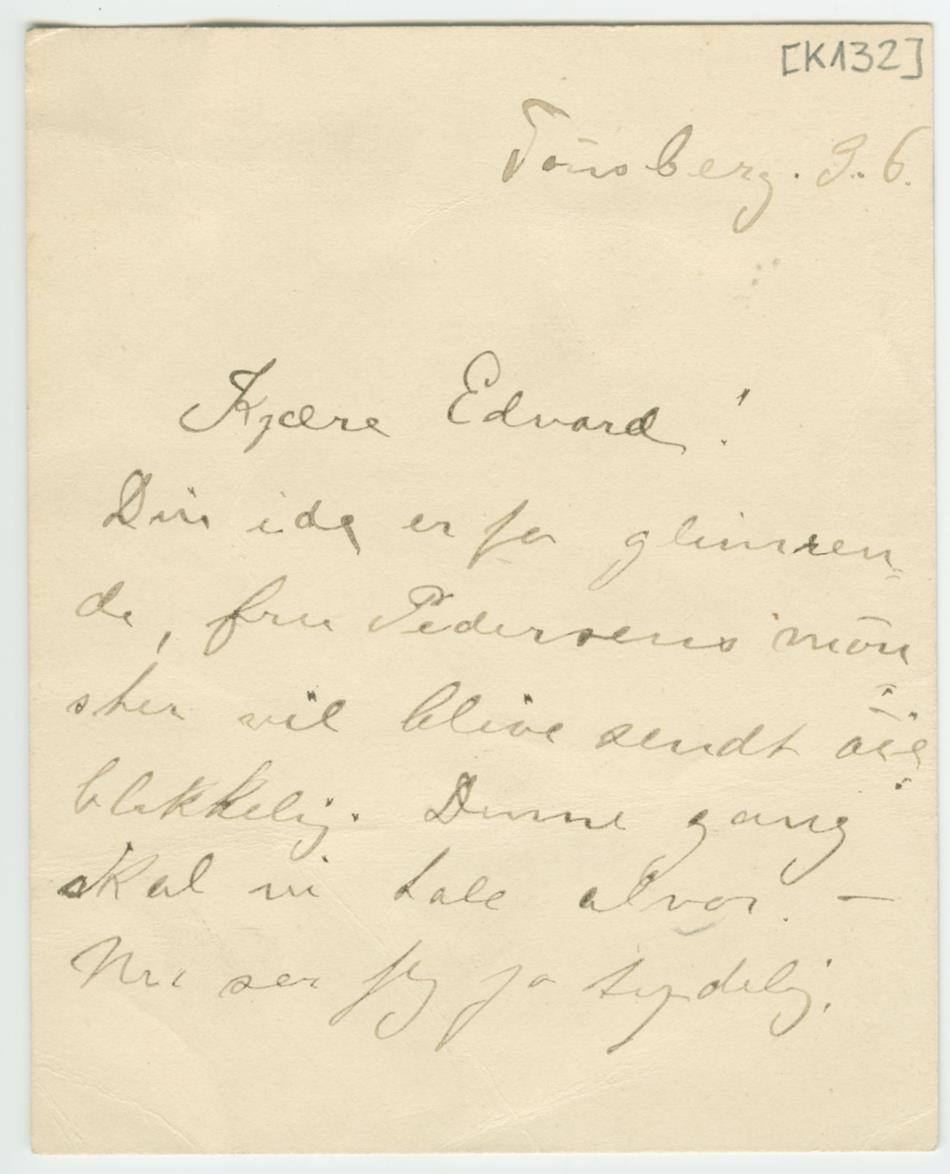 [K132]
Tönsberg. 3.6.
Kjære Edvard!
Din ide er jo glimren-
de, fru Pedersens mön
ster vil blive sendt öie
blikkelig. Denne gang
skal vi tale alvor. —
Nu ser jeg jo tydelig,